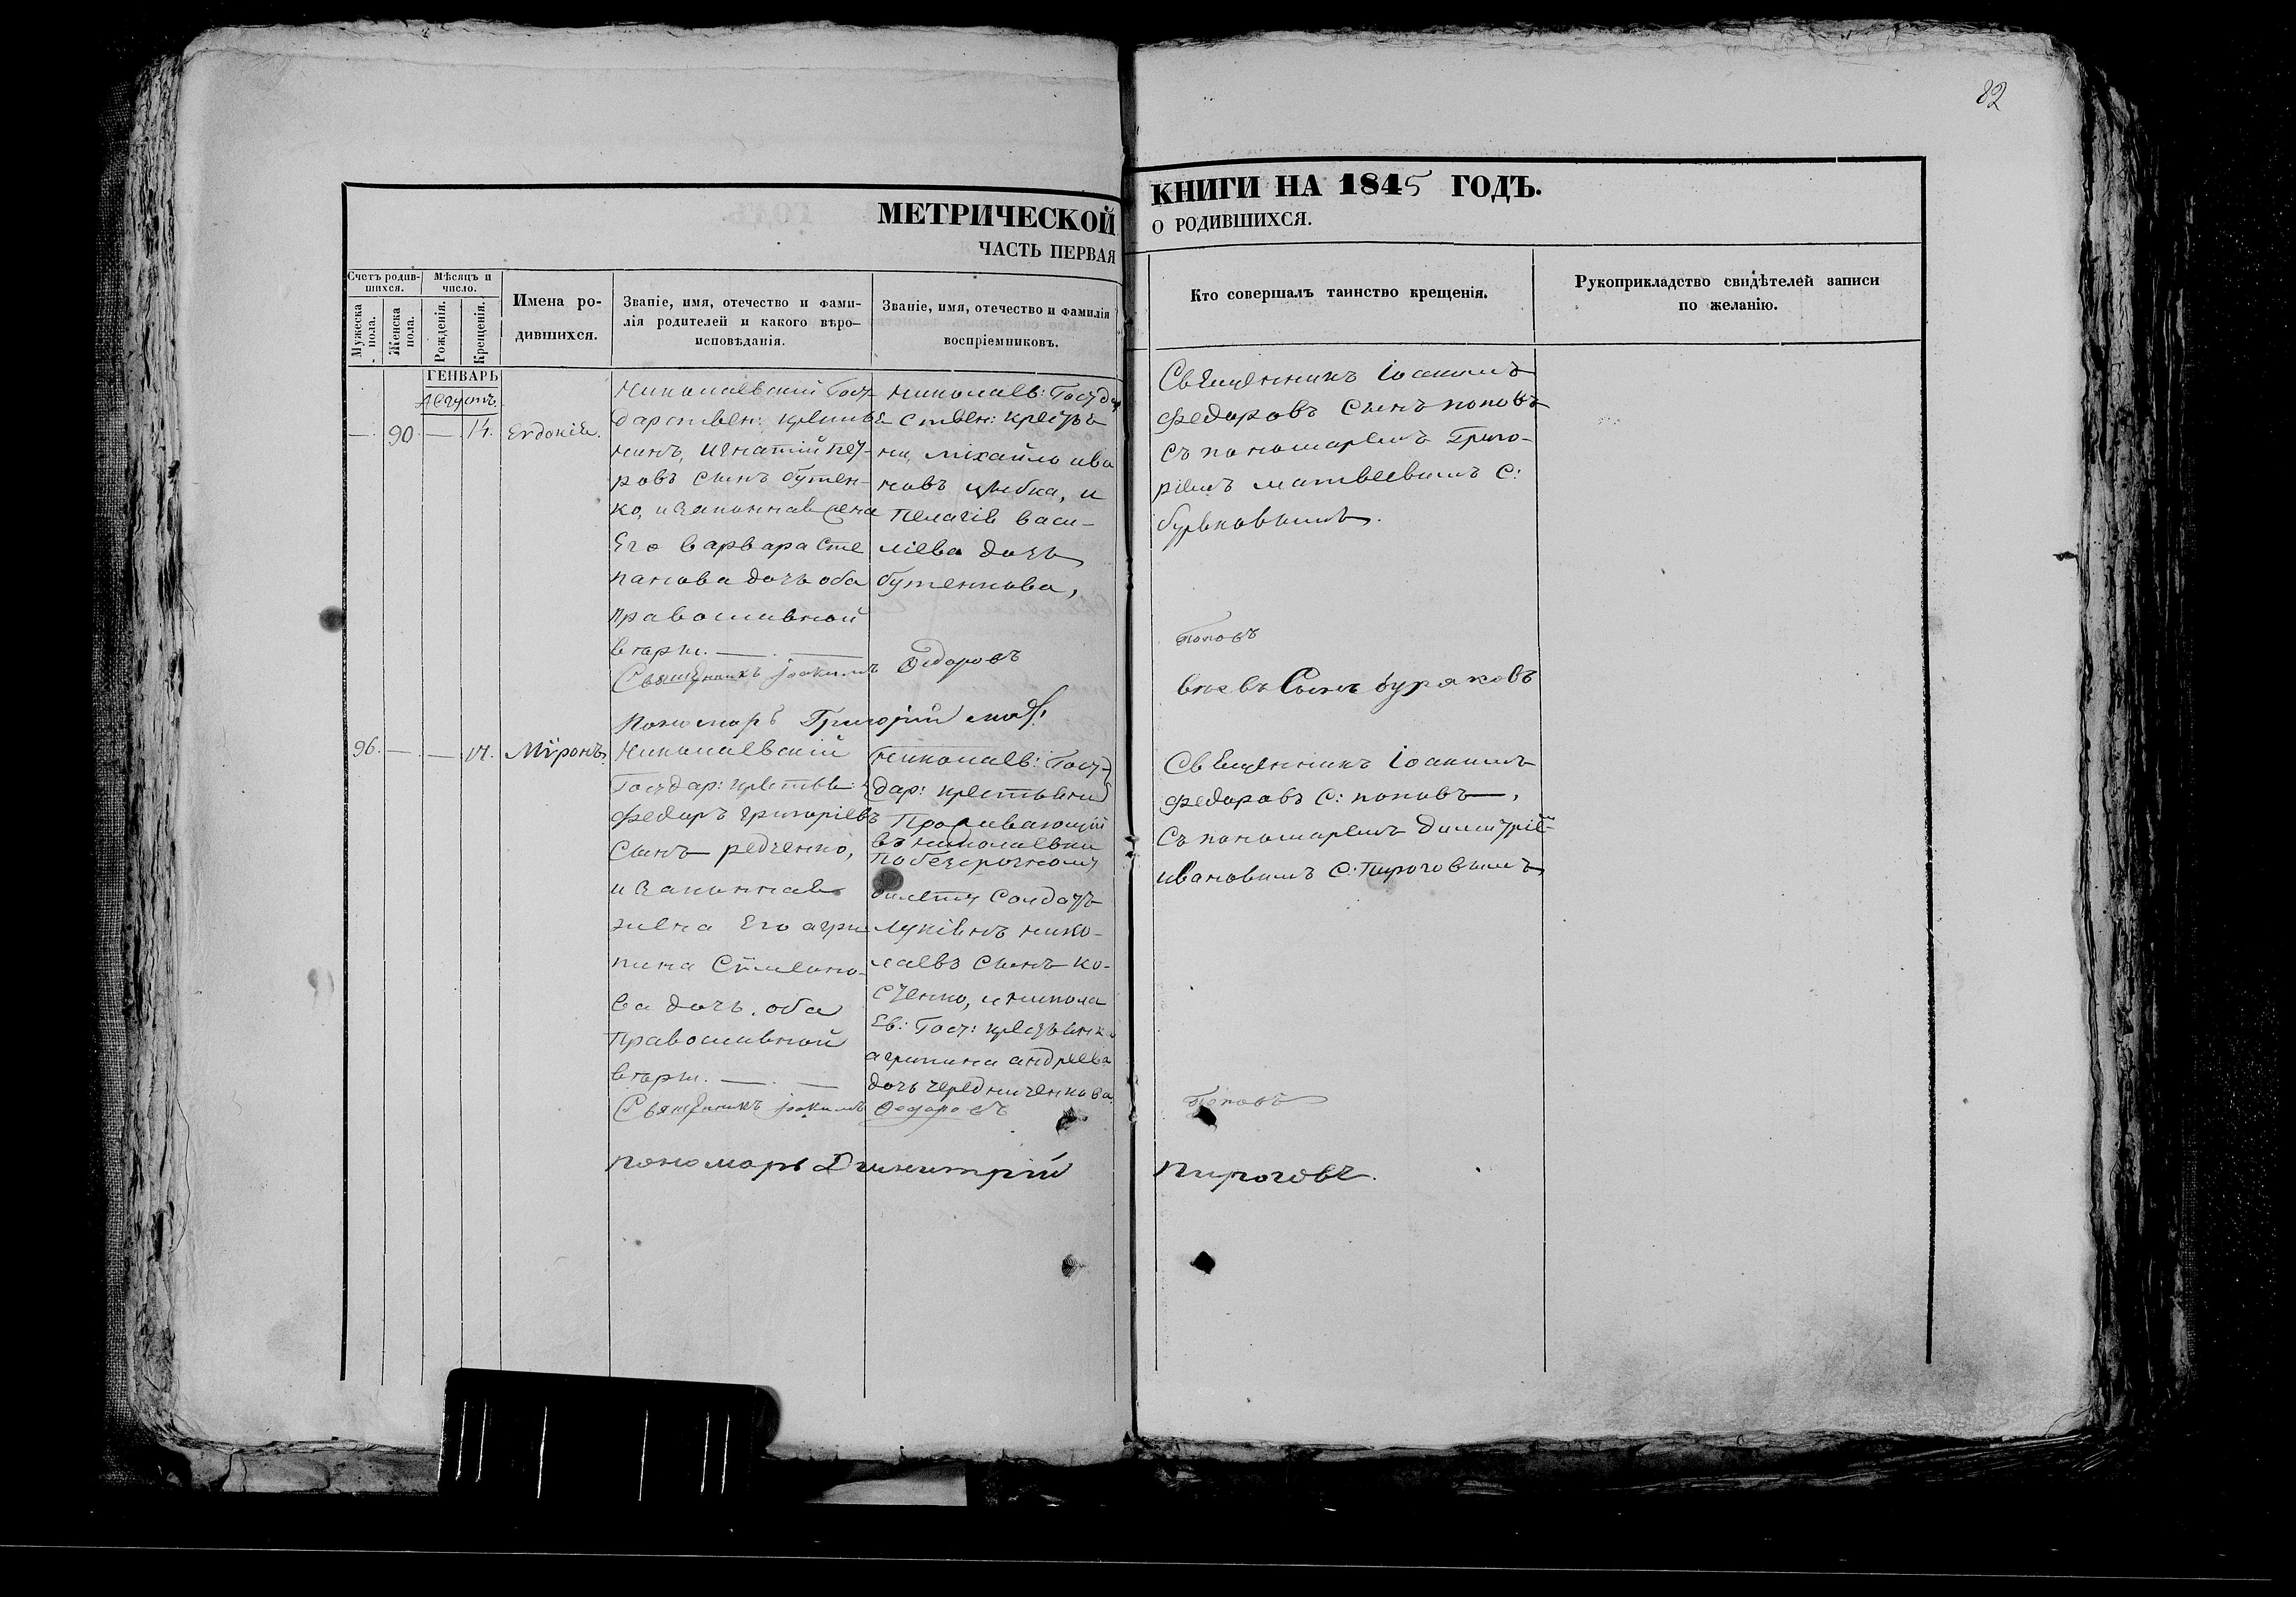 82
МЕТРИЧЕСКОЙ
ЧАСТЬ ПЕРВАЯ
КНИГИ НА 1845 ГОДЪ.
О РОДИВШИХСЯ.
Счетъ родив-
шихся.
Мужеска
пола.
Женска
пола.
Мѣсяцъ и
число.
Рожденія.
Крещенія.
Имена ро-
дившихся.
Званіе, имя, отечество и фами-
лія родителей и какого вѣро-
исповѣданія.
Званіе, имя, отечество и фамилія
воспріемниковъ.
Кто совершалъ таинство крещенія.
Рукоприкладство свидѣтелей записи
по желанію.
ГЕНВАРЬ
Августъ
— 90. — 14. Евдокія.
Николаевскій Госу-
дарствен: крестья-
нинъ, Игнатій пет-
ровъ сынъ бутен-
ко, и законная жена
Его варвара Сте
панова дочь оба
православной
вѣры.
Николаев: Госуда
ствен: крестья
ни, михайло ива
новъ цыбка, и
Пелагія васи-
лієва дочь
бутенкова,
Священникъ Іоакимъ
федоровъ сынъ поповъ
съ пономаремъ Григо-
ріемъ матвеевымъ С:
буряковымъ.
Священникъ Іоакимъ Федоровъ Поповъ
Пономарь Григорій мат: вѣевъ Сынъ буряковъ
96. — — 14. Миронъ.
Николаевскій
Государ: крестья:
федоръ григоріевъ
сынъ редченко,
и законная
жена Его агри
пина Симеоно-
ва дочь. оба
Православной
вѣры.
Николаев: Госу-
дар: крестьяни
Проживающій
въ николаевки
по безсрочному
билету Солдатъ
лукіянъ нико-
лаевъ сынъ ко-
сченко, и никола
Ев: Госу: крестьянка
агрипина андреева
дочь чередниченкова
Священникъ Іоакимъ
федоровъ С: поповъ,
съ пономаремъ Димитріем
ивановымъ С: Пироговымъ
Священникъ Іоакимъ Федоровъ Поповъ
пономарь Димитрій пироговъ.